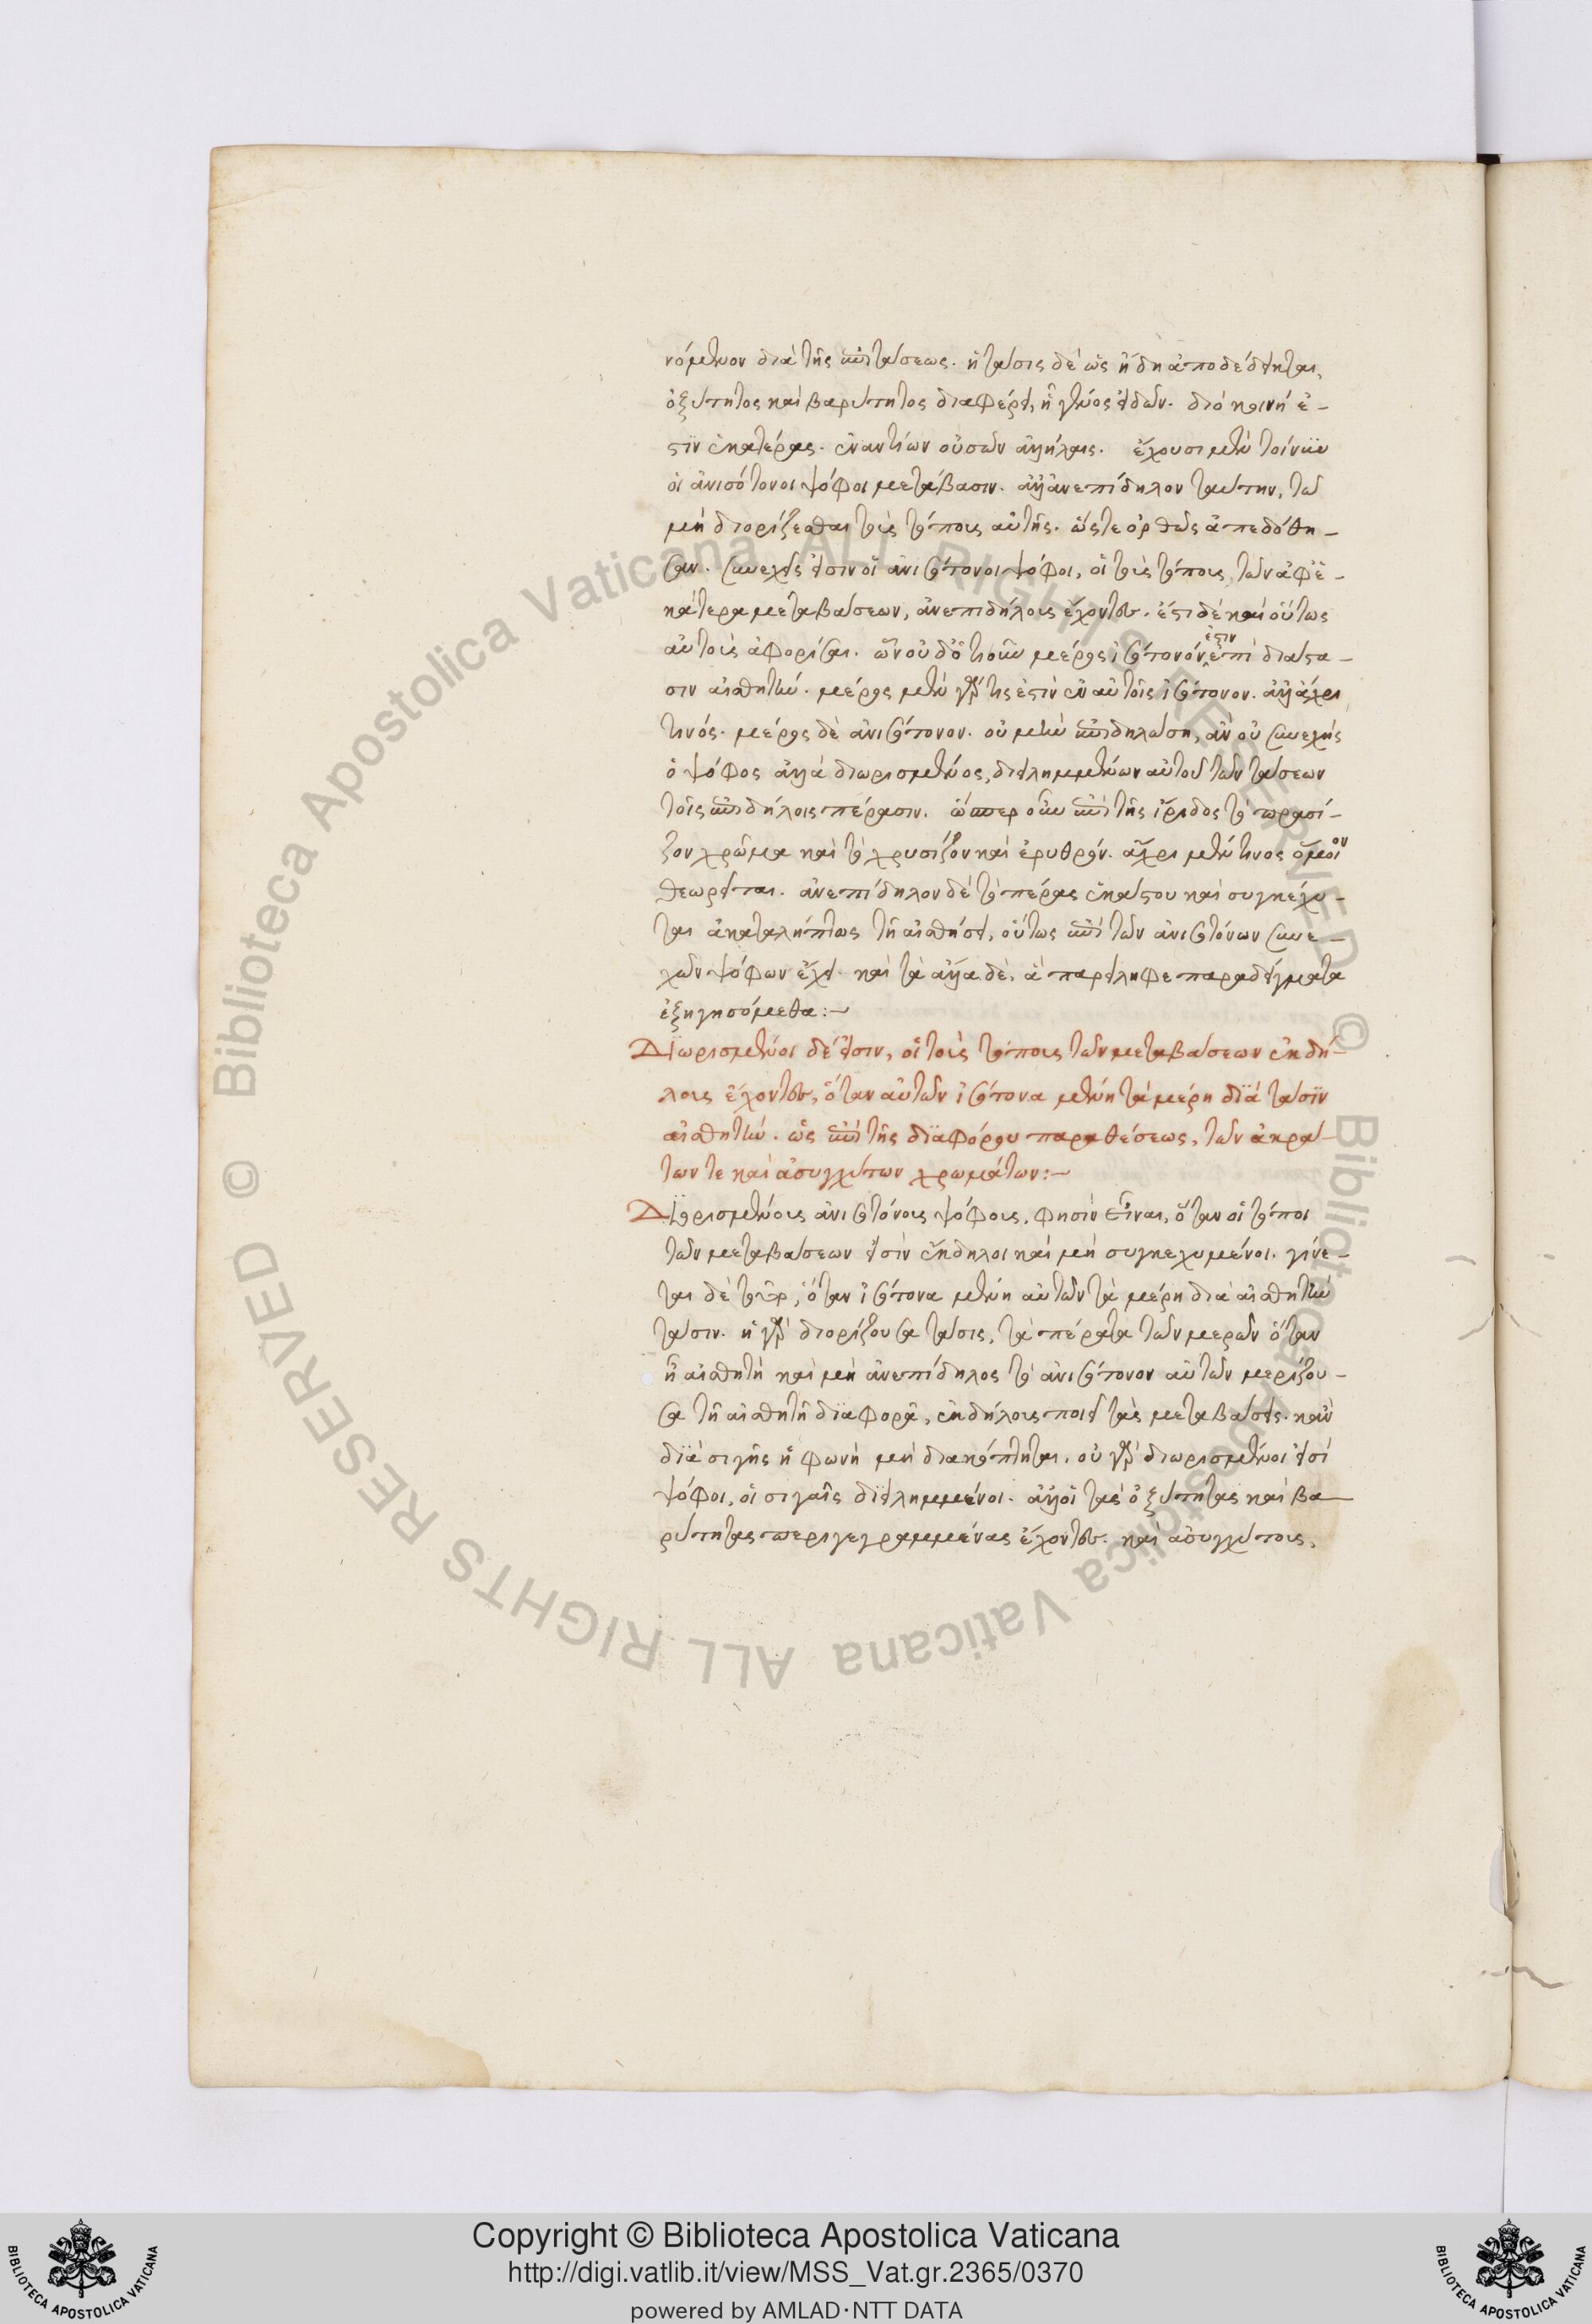 νόμενον διὰ τῆς ἐπιτάσεως. ἡ τάσις δὲ ὡς ἤδη ἀποδέδεικται,
ὀξύτητος καὶ βαρύτητος διαφέρει, ἢ γένος εἰδῶν. διὸ κοινή ἐ-
στιν ἑκατέρας. ἐναντίων οὐσῶν ἀλλήλαις. ἔχουσι μὲν τοίνυν
οἱ ἀνισότονοι ψόφοι μετάβασιν. ἀλλ' ἀνεπίδηλον ταύτην, τῶ
μὴ διορίζεσθαι τοὺς τόπους αὐτῆς. ὥστε ὀρθῶς ἀπεδόθη-
σαν. συνεχεῖς εἰσιν οἱ ἀνισότονοι ψόφοι, οἱ τοὺς τόπους τῶν ἀφ' ἑ-
κάτερα μεταβάσεων, ἀνεπιδήλους ἔχοντες. ἔτι δὲ καὶ οὕτως
αὐτοὺς ἀφορίσαι. ὧν οὐδ' ὁτιοῦν μέρος ἰσότονόν ἐστιν ἐπὶ διάστα-
σιν αἰσθητήν. μέρος μὲν γάρ τι ἐστὶν ἐν αὐτοῖς ἰσότονον. ἀλλ' ἄχρι
τινός. μέρος δὲ ἀνισότονον. οὐ μὴν ἐπιδηλώση, ἂν οὐ συνεχὴς
ὁ ψόφος ἀλλὰ διωρισμένος, διειλημμένων αὐτοῦ τῶν τάσεων
τοῖς ἐπιδήλοις πέρασιν. ὥσπερ οὖν ἐπὶ τῆς ἴριδος τὸ πρασί-
ζον χρῶμα καὶ τὸ χρυσίζον καὶ ἐρυθρόν. ἄχρι μέν τινος ὅμοιον
θεωρεῖται. ἀνεπίδηλον δὲ τὸ πέρας ἑκάστου καὶ συγκέχυ-
ται ἀκαταλήπτως τῆ αἰσθήσει, οὕτως ἐπὶ τῶν ἀνισοτόνων συνε-
χῶν ψόφων ἔχει. καὶ τὰ ἄλλα δὲ, ἃ παρείληφε παραδείγματα
ἐξηγησόμεθα:–
Διωρισμένοι δέ εἰσιν, οἱ τοὺς τόπους τῶν μεταβάσεων ἐκδή-
λους ἔχοντες, ὅταν αὐτῶν ἰσότονα μένη τὰ μέρη διὰ τάσιν
αἰσθητήν. ὡς ἐπὶ τῆς διαφόρου παραθέσεως, τῶν ἀκρά-
των τε καὶ ἀσυγχύτων χρωμάτων:–
Διωρισμένους ἀνισοτόνους ψόφους, φησὶν εἶναι, ὅταν οἱ τόποι
τῶν μεταβάσεων εἰσὶν ἔκδηλοι καὶ μὴ συγκεχυμένοι. γίνε-
ται δὲ τοῦτο, ὅταν ἰσότονα μένη αὐτῶν τὰ μέρη διὰ αἰσθητὴν
τάσιν. ἡ γὰρ διορίζουσα τάσις, τὰ πέρατα τῶν μερῶν ὅταν
ἦ αἰσθητὴ καὶ μὴ ἀνεπίδηλος τὸ ἀνισότονον αὐτῶν μερίζου-
σα τῆ αἰσθητῆ διαφορᾶ, ἐκδήλους ποιεῖ τὰς μεταβάσεις. κἂν
διὰ σιγῆς ἡ φωνὴ μὴ διακόπτηται. οὐ γὰρ διωρισμένοι εἰσὶ
ψόφοι, οἱ σιγαῖς διειλημμένοι. ἀλλ' οἱ τὰς ὀξύτητας καὶ βα-
ρύτητας περιγεγραμμένας ἔχοντες. καὶ ἀσυγχύτους,
Copyright © Biblioteca Apostolica Vaticana
http://digi.vatlib.it/view/MSS_Vat.gr.2365/0370
powered by AMLAD·NTT DATA